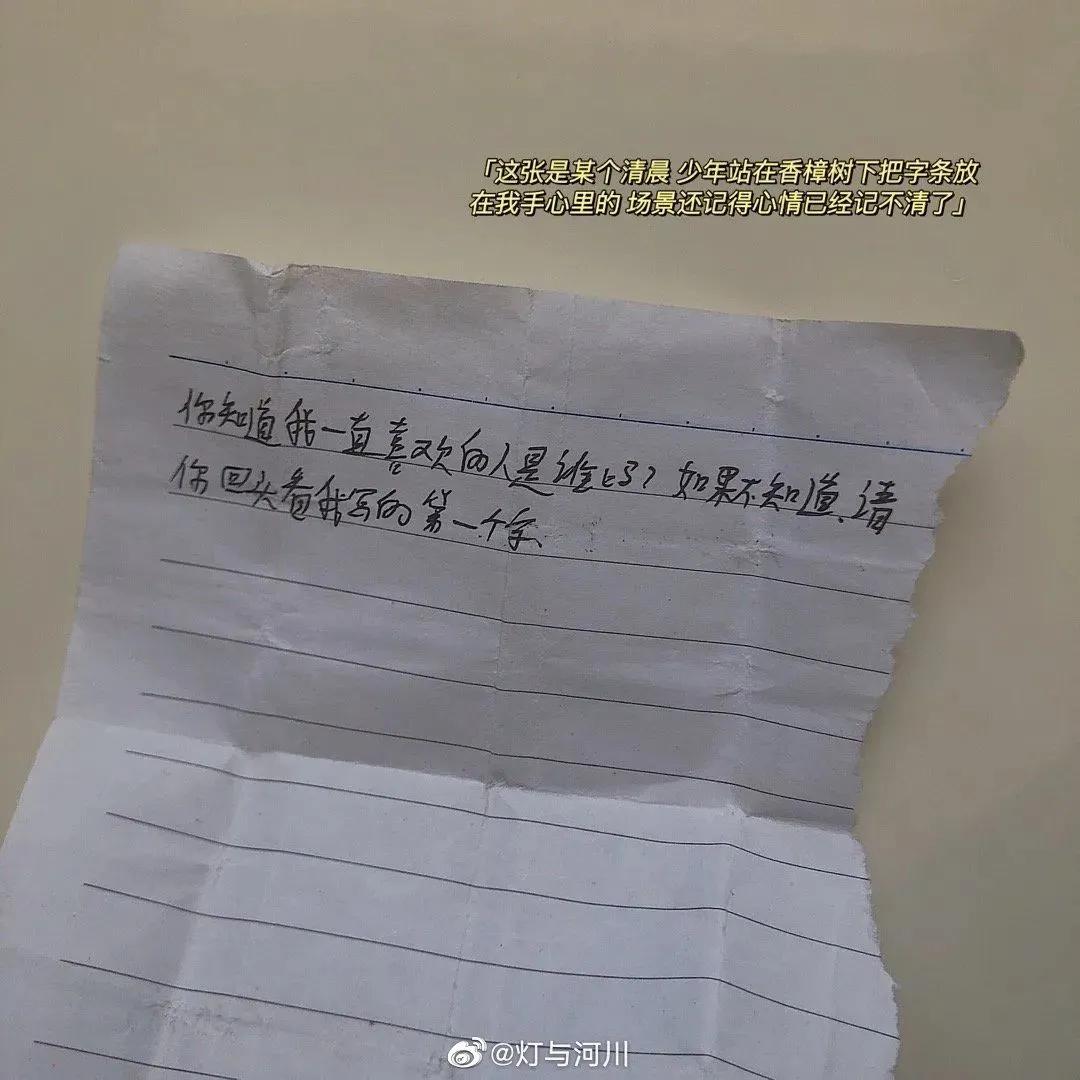 「这张是某个清晨 少年站在香樟树下把字条放
在我手心里的 场景还记得心情已经记不清了」
你知道我一直喜欢的人是谁吗?如果不知道、请
你回头看我写的第一个字、
@灯与河川